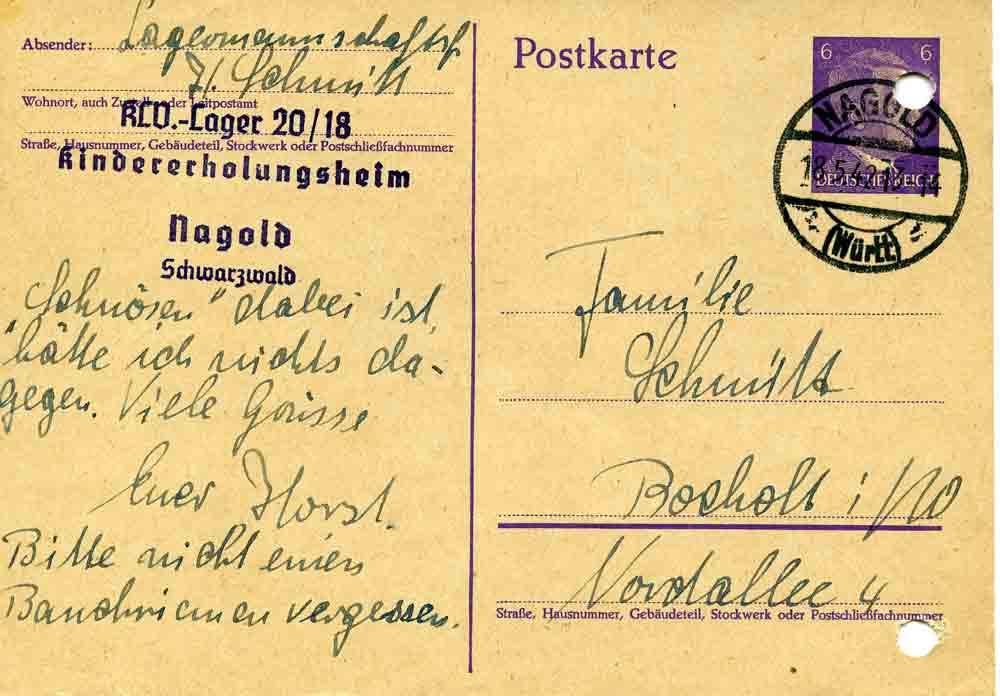 Absender: Lagermannschaftsf.
H. Schmitt
Wohnort, auch Zustell- oder Leitpostamt
KLV.-Lager 20/18
Straße, Hausnummer, Gebäudeteil, Stockwerk oder Postschließfachnummer
Kindererholungsheim
Nagold
Schwarzwald
"Schnösen" dabei ist,
hätte ich nichts da-
gegen. Viele Grüsse
Euer Horst.
Bitte nicht einen
Bauchriemen vergessen.
Postkarte
6 6
DEUTSCHES REICH
NAGOLD
18.5.42
14
(Württ)
Familie
Schmitt
Bocholt i/W
Nordallee 4
Straße, Hausnummer, Gebäudeteil, Stockwerk oder Postschließfachnummer